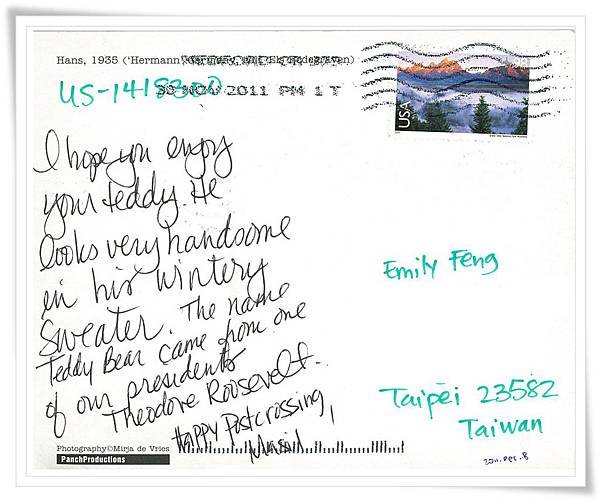 Hans, 1935 ('Hermann
US-1418300
30 NOV 2011 PM 1 T
USA
I hope you enjoy
your teddy. He
looks very handsome
in his wintery
sweater. The name
Teddy Bear came from one
of our presidents
Theodore Roosevelt.
Happy Postcrossing,
Emily Feng
Taipei 23582
Taiwan
2011.Dec.8
Photography©Mirja de Vries
PanchProductions